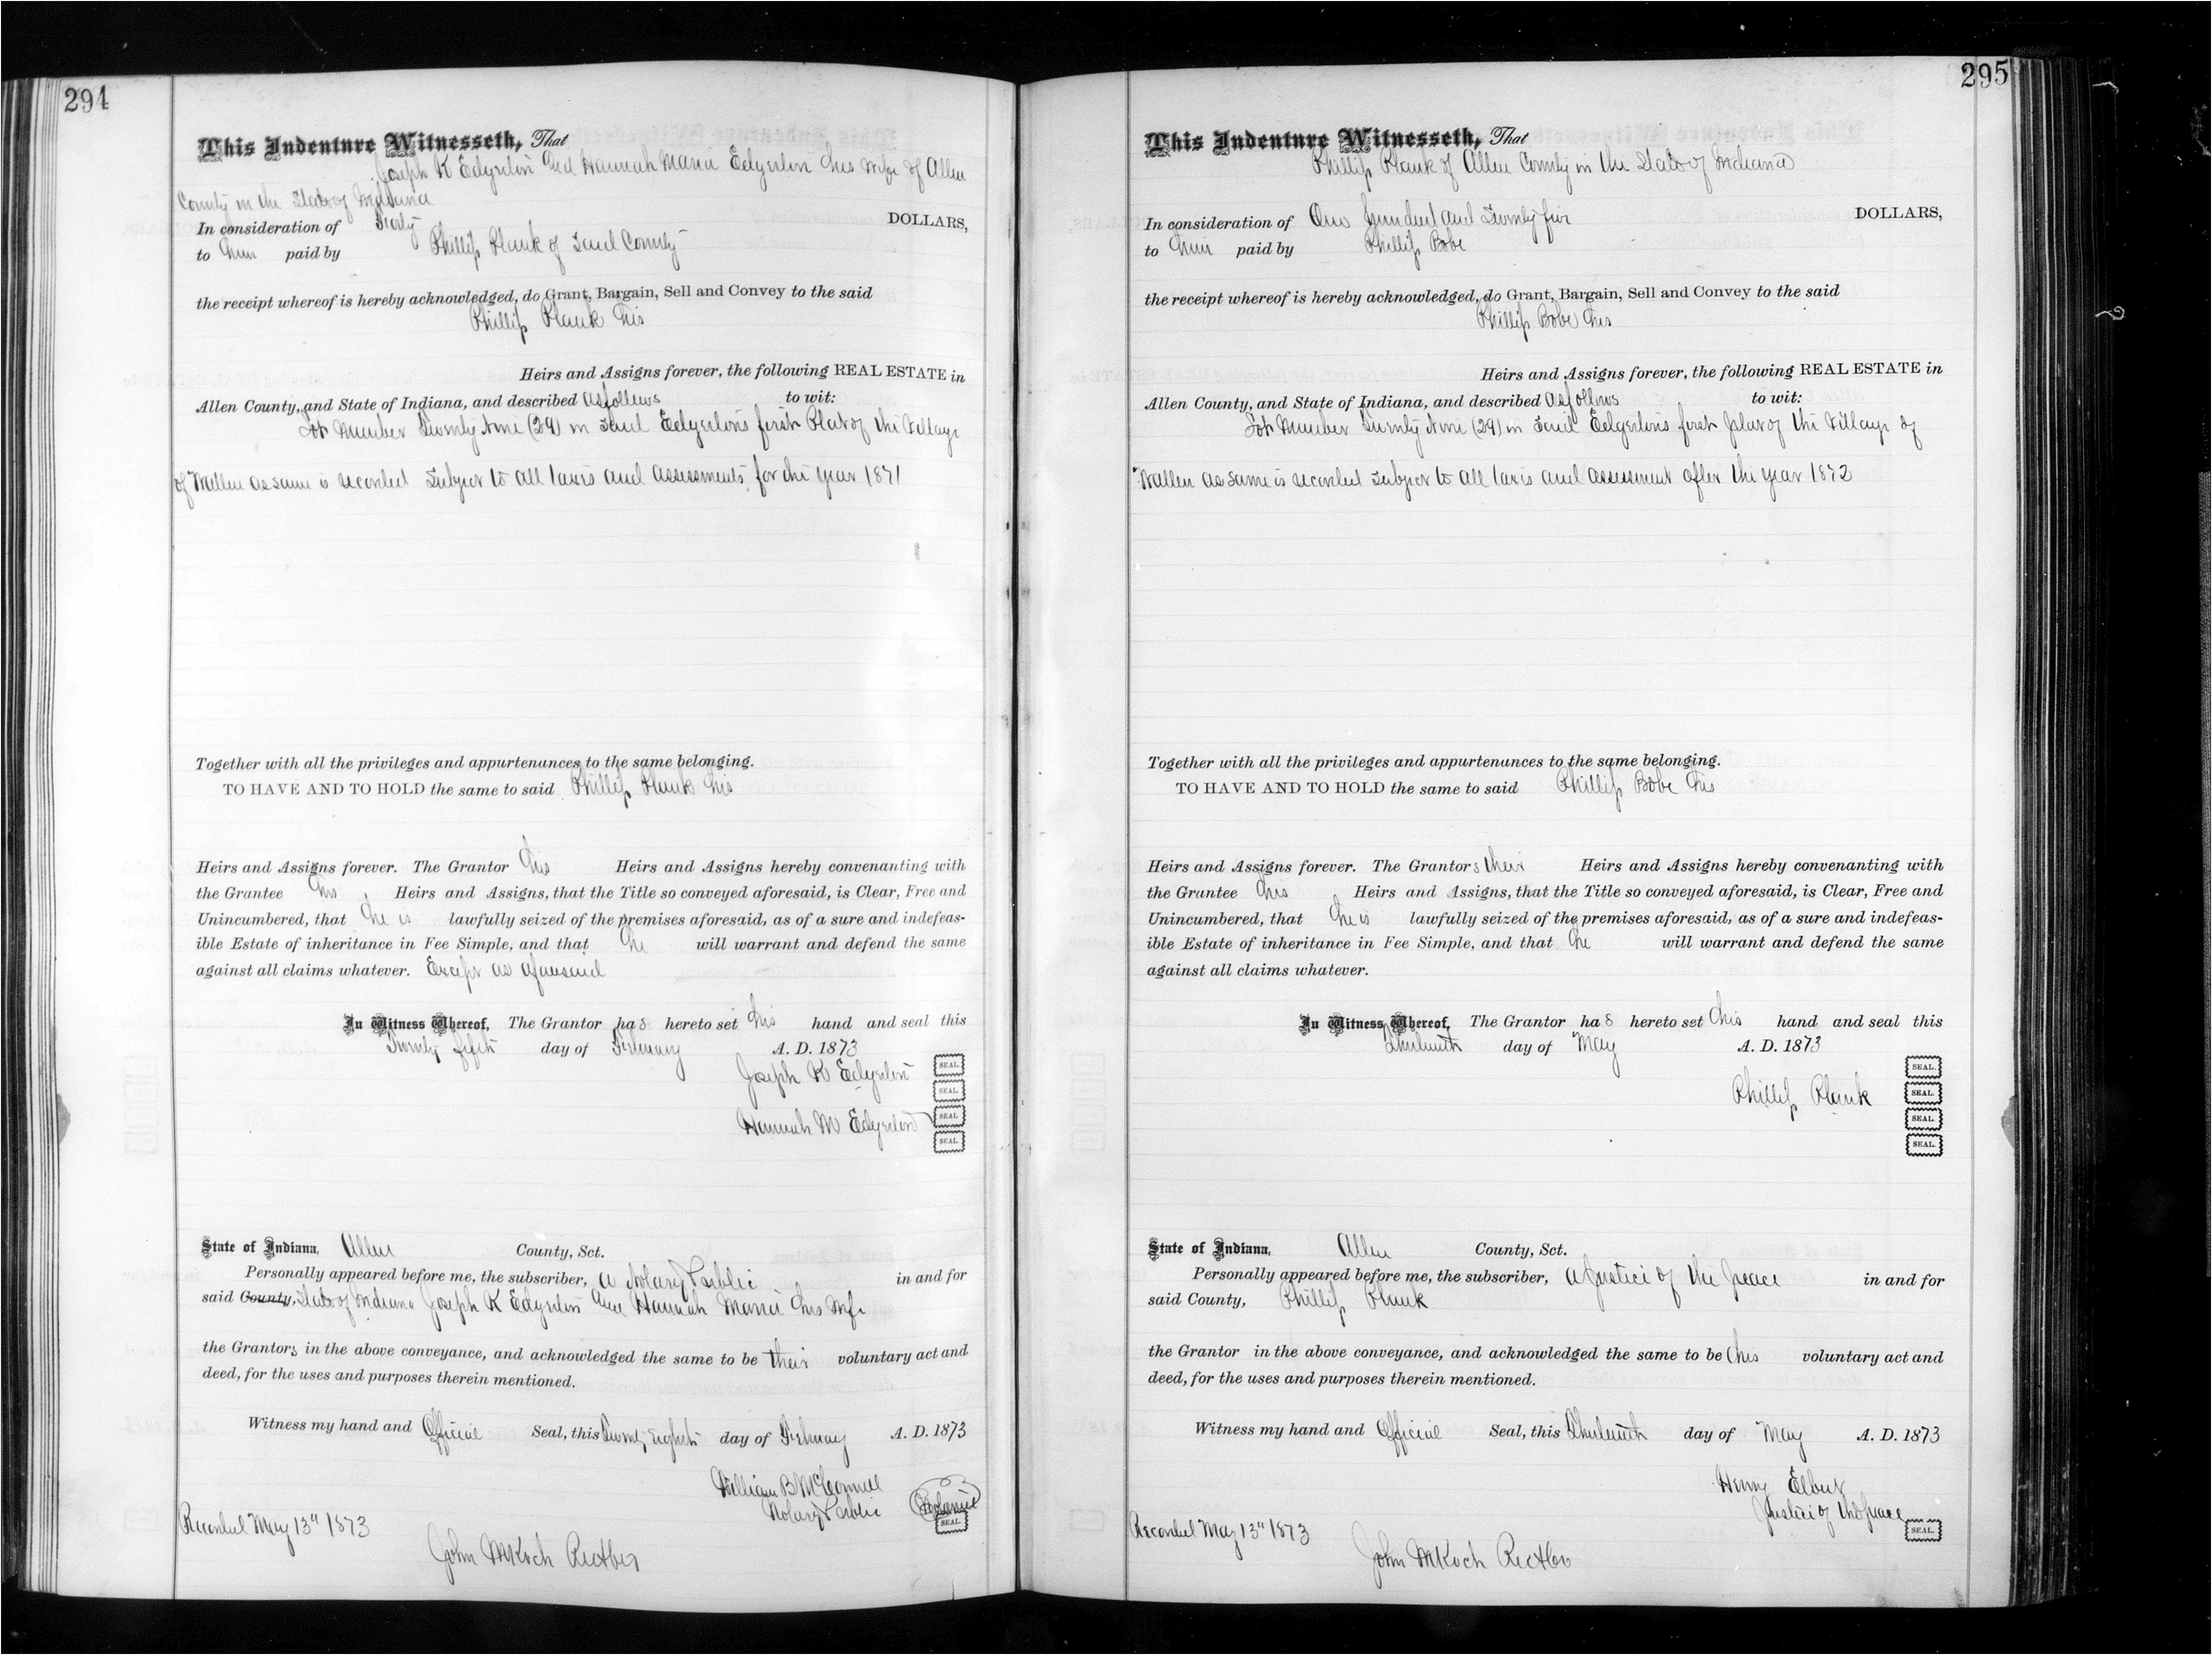 294
This Indenture Witnesseth, That
Joseph K Edgerton and Hannah Maria Edgerton his wife of Allen
County in the State of Indiana
In consideration of DOLLARS,
to him paid by Phillip Plank of said County
the receipt whereof is hereby acknowledged, do Grant, Bargain, Sell and Convey to the said
Phillip Plank his
Heirs and Assigns forever, the following REAL ESTATE in
Allen County, and State of Indiana, and described as follows to wit:
Lot Number Twenty Nine (29) in said Edgertons first Plat of the Village
of Wallen as same is recorded Subject to all taxes and assessments for the year 1871
Together with all the privileges and appurtenances to the same belonging.
TO HAVE AND TO HOLD the same to said Phillip Plank his
Heirs and Assigns forever. The Grantor his Heirs and Assigns hereby convenanting with
the Grantee his Heirs and Assigns, that the Title so conveyed aforesaid, is Clear, Free and
Unincumbered, that he is lawfully seized of the premises aforesaid, as of a sure and indefeas-
ible Estate of inheritance in Fee Simple, and that he will warrant and defend the same
against all claims whatever. Except as aforesaid
In Witness Whereof, The Grantor has hereto set his hand and seal this
Twenty fifth day of February A. D. 1873
Joseph K Edgerton SEAL.
SEAL.
Hannah M Edgerton SEAL.
SEAL.
State of Indiana, Allen County, Sct.
Personally appeared before me, the subscriber, a Notary Public in and for
said County, State of Indiana Joseph K Edgerton and Hannah Maria his wife
the Grantors in the above conveyance, and acknowledged the same to be their voluntary act and
deed, for the uses and purposes therein mentioned.
Witness my hand and Official Seal, this Twenty Eighth day of February A. D. 1873
William B McConnell
Notary Public Notarial SEAL.
Recorded May 13" 1873
John M Koch Rec Allen Co
295
This Indenture Witnesseth, That
Phillip Plank of Allen County in the State of Indiana
In consideration of One hundred and Twenty five DOLLARS,
to him paid by Phillip Bobe
the receipt whereof is hereby acknowledged, do Grant, Bargain, Sell and Convey to the said
Phillip Bobe his
Heirs and Assigns forever, the following REAL ESTATE in
Allen County, and State of Indiana, and described as follows to wit:
Lot Number Twenty Nine (29) in said Edgertons first plat of the Village of
Wallen as same is recorded subject to all taxes and assessment after the year 1872
Together with all the privileges and appurtenances to the same belonging.
TO HAVE AND TO HOLD the same to said Phillip Bobe his
Heirs and Assigns forever. The Grantors their Heirs and Assigns hereby convenanting with
the Gruntee his Heirs and Assigns, that the Title so conveyed aforesaid, is Clear, Free and
Unincumbered, that he is lawfully seized of the premises aforesaid, as of a sure and indefeas-
ible Estate of inheritance in Fee Simple, and that he will warrant and defend the same
against all claims whatever.
In Witness Whereof, The Grantor has hereto set his hand and seal this
Thirteenth day of May A. D. 1873
SEAL.
Phillip Plank SEAL.
SEAL.
SEAL.
State of Indiana, Allen County, Sct.
Personally appeared before me, the subscriber, a Justice of the peace in and for
said County, Phillip Plank
the Grantor in the above conveyance, and acknowledged the same to be his voluntary act and
deed, for the uses and purposes therein mentioned.
Witness my hand and Official Seal, this Thirteenth day of May A. D. 1873
Henry Elbert
Justice of the peace SEAL.
Recorded May 13" 1873
John M Koch Rec Allen Co